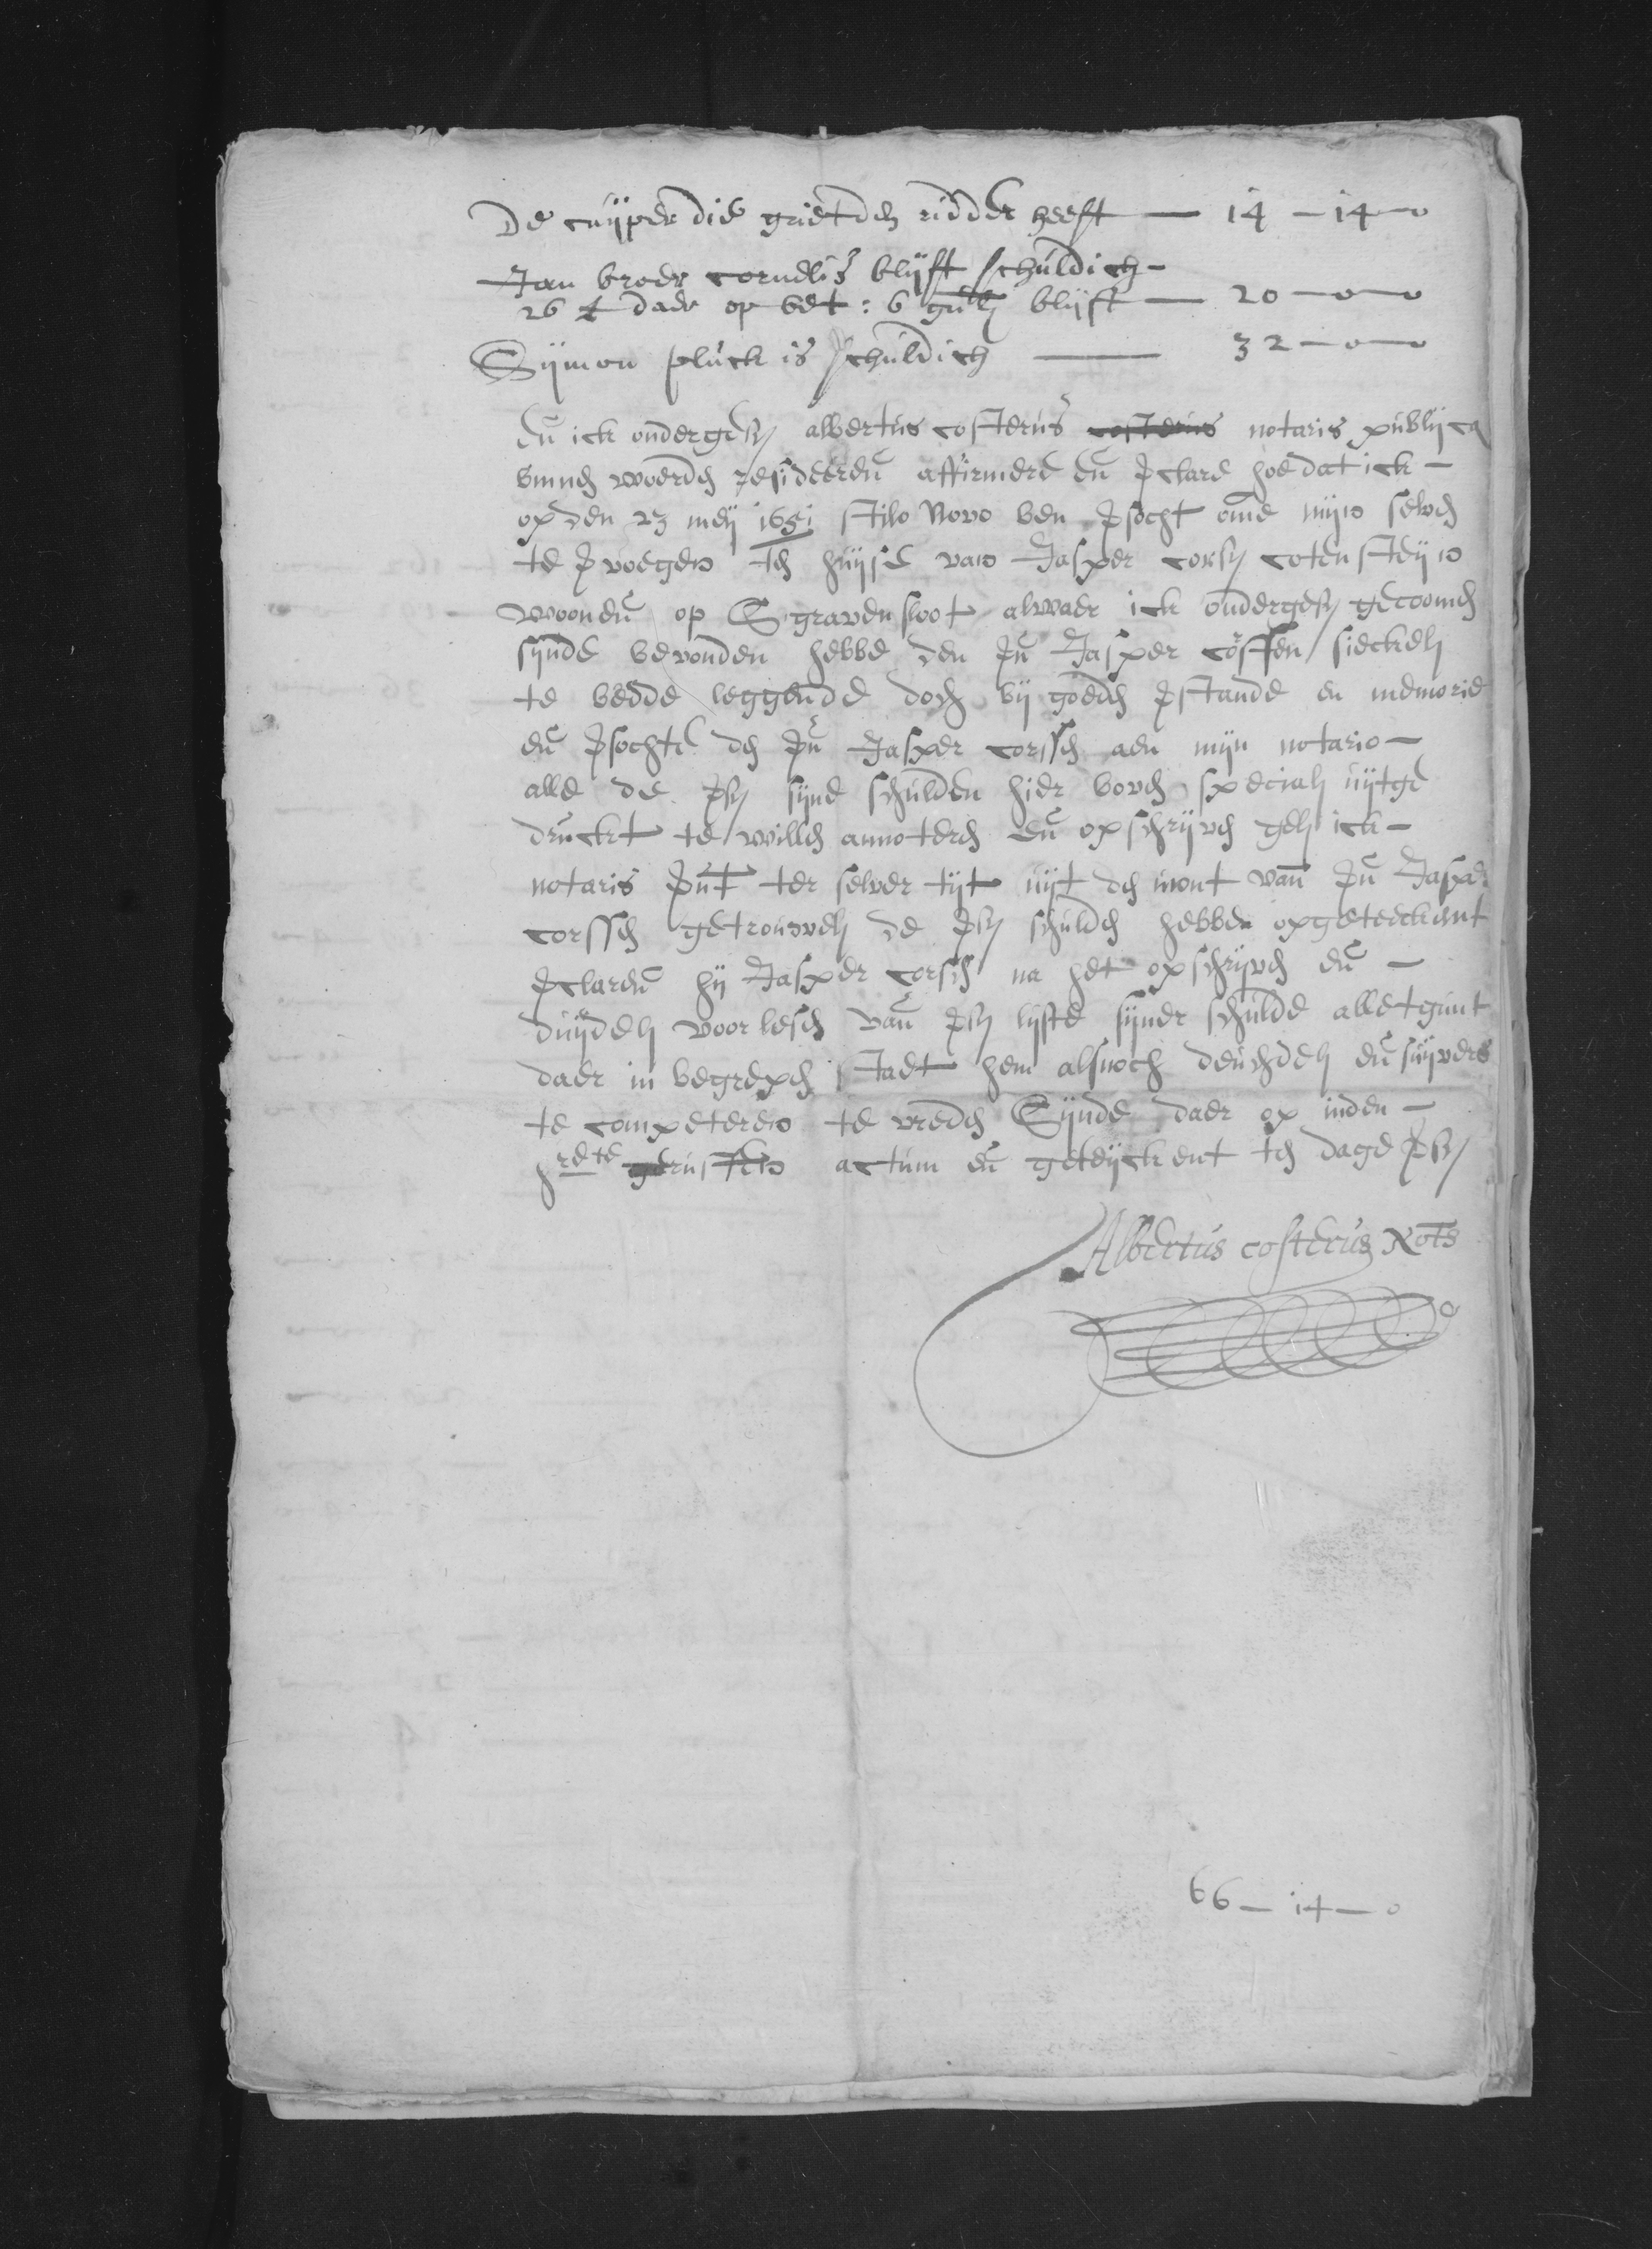 De cuijper die grietden ridder heeft — 14 — 14 — 0
Jan broer cornelis blijft schuldich —
26 ₤ daer op bet : 6 gul blijft — 20 — 0 — 0
Sijmon pluck is schuldich — 32 — 0 — 0
En ick ondergesz albertus costerus costerus notaris publijcq
binnen woerden resideeren affirmere en vclare hoe dat ick —
op den 23 meij 1651 stilo Novo ben vsocht ome mijn selven
te vvoegen ten huijse van Jasper corsz cotensteijn
woonen op Sgravensloot alwaer ick ondergesz gecoomen
sijnde bevonden hebbe den vn Jasper corssen sieckel
te bedde leggende doch bij goeden vstande en memorie
en vsochte de vn Jasper corssen aen mijn notario —
alle de vsz sijne schulden hier boven special uijtge
druckt te willen annoteren en opschrijven gel ick —
notaris vnt ter selver tijt uijt den mont van vn Jasper
corssen getrouwel de vsz schulden hebbe opgeteeckent
vclaren hij Jasper corsen na het opschrijven en —
duijdel voorlesen van vsz lijste sijner schulde alletgunt
daer in begrepen staet hem alsnoch deuchdel en suijvers
te competeren te vreden Sijnde daer op inden —
gerusten actum en geteijckent ten dage vsz
Albertus costerus Nots
66 — 14 — 0